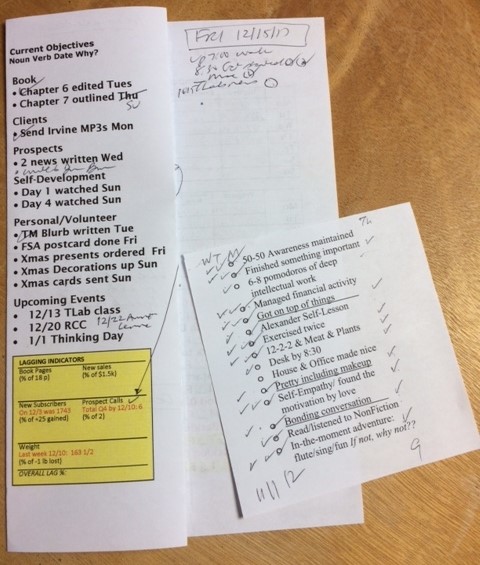 Current Objectives
Noun Verb Date Why?
Book
• Chapter 6 edited Tues
• Chapter 7 outlined Thu
Su
Clients
• Send Irvine MP3s Mon
Prospects
• 2 news written Wed
Self-Development
• Day 1 watched Sun
• Day 4 watched Sun
Personal/Volunteer
• TM Blurb written Tue
• FSA postcard done Fri
• Xmas presents ordered Fri
• Xmas Decorations up Sun
• Xmas cards sent Sun
Upcoming Events
• 12/13 TLab class
• 12/20 RCC 12/22
• 1/1 Thinking Day
LAGGING INDICATORS
Book Pages
(% of 18 p)
New sales
(% of $1.5k)
New Subscribers
On 12/3 was 1743
(% of +25 gained)
Prospect Calls
Total Q4 by 12/10: 6
(% of 2)
Weight
Last week 12/10: 163 1/2
(% of -1 lb lost)
OVERALL LAG %:
FRI 12/15/17
up 7:00
8:30
W T M Th
50-50 Awareness maintained
Finished something important
6-8 pomodoros of deep
intellectual work
Managed financial activity
Got on top of things
Alexander Self-Lesson
Exercised twice
12-2-2 & Meat & Plants
Desk by 8:30
House & Office made nice
Pretty including makeup
Self-Empathy/ found the
motivation by love
Bonding conversation
Read/listened to NonFiction
In-the-moment adventure:
flute/sing/fun If not, why not??
11 11 12 9